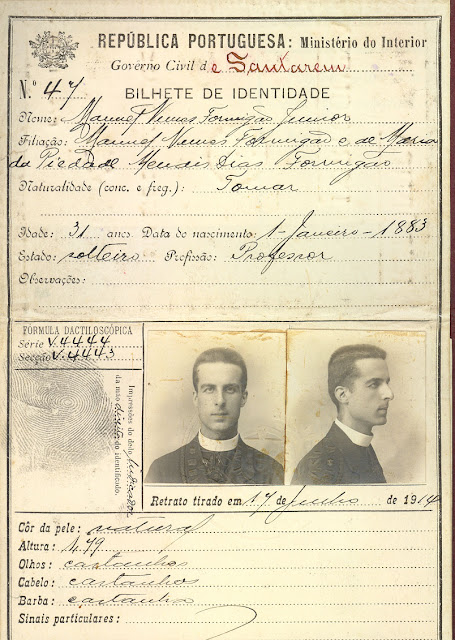 REPÚBLICA PORTUGUESA: Ministério do Interior
Governo Civil de Santarem
N.º 47
BILHETE DE IDENTIDADE
Nome: Manuel Nunes Formigão Junior
Filiação: Manuel Nunes Formigão e de Maria
da Piedade Mendes Dias Formigão
Naturalidade (conc. e freg.): Tomar
Idade: 31 anos Data do nascimento: 1-Janeiro-1883
Estado: solteiro Profissão: Professor
Observações:
FÓRMULA DACTILOSCÓPICA
Série V.4444
Secção V.4443
Impressões do dedo indicador
da mão direita do identificado.
Retrato tirado em 17 de Junho de 1914
Côr da pele: natural
Altura: 1,79
Olhos: castanhos
Cabelo: castanhos
Barba: castanha
Sinais particulares: